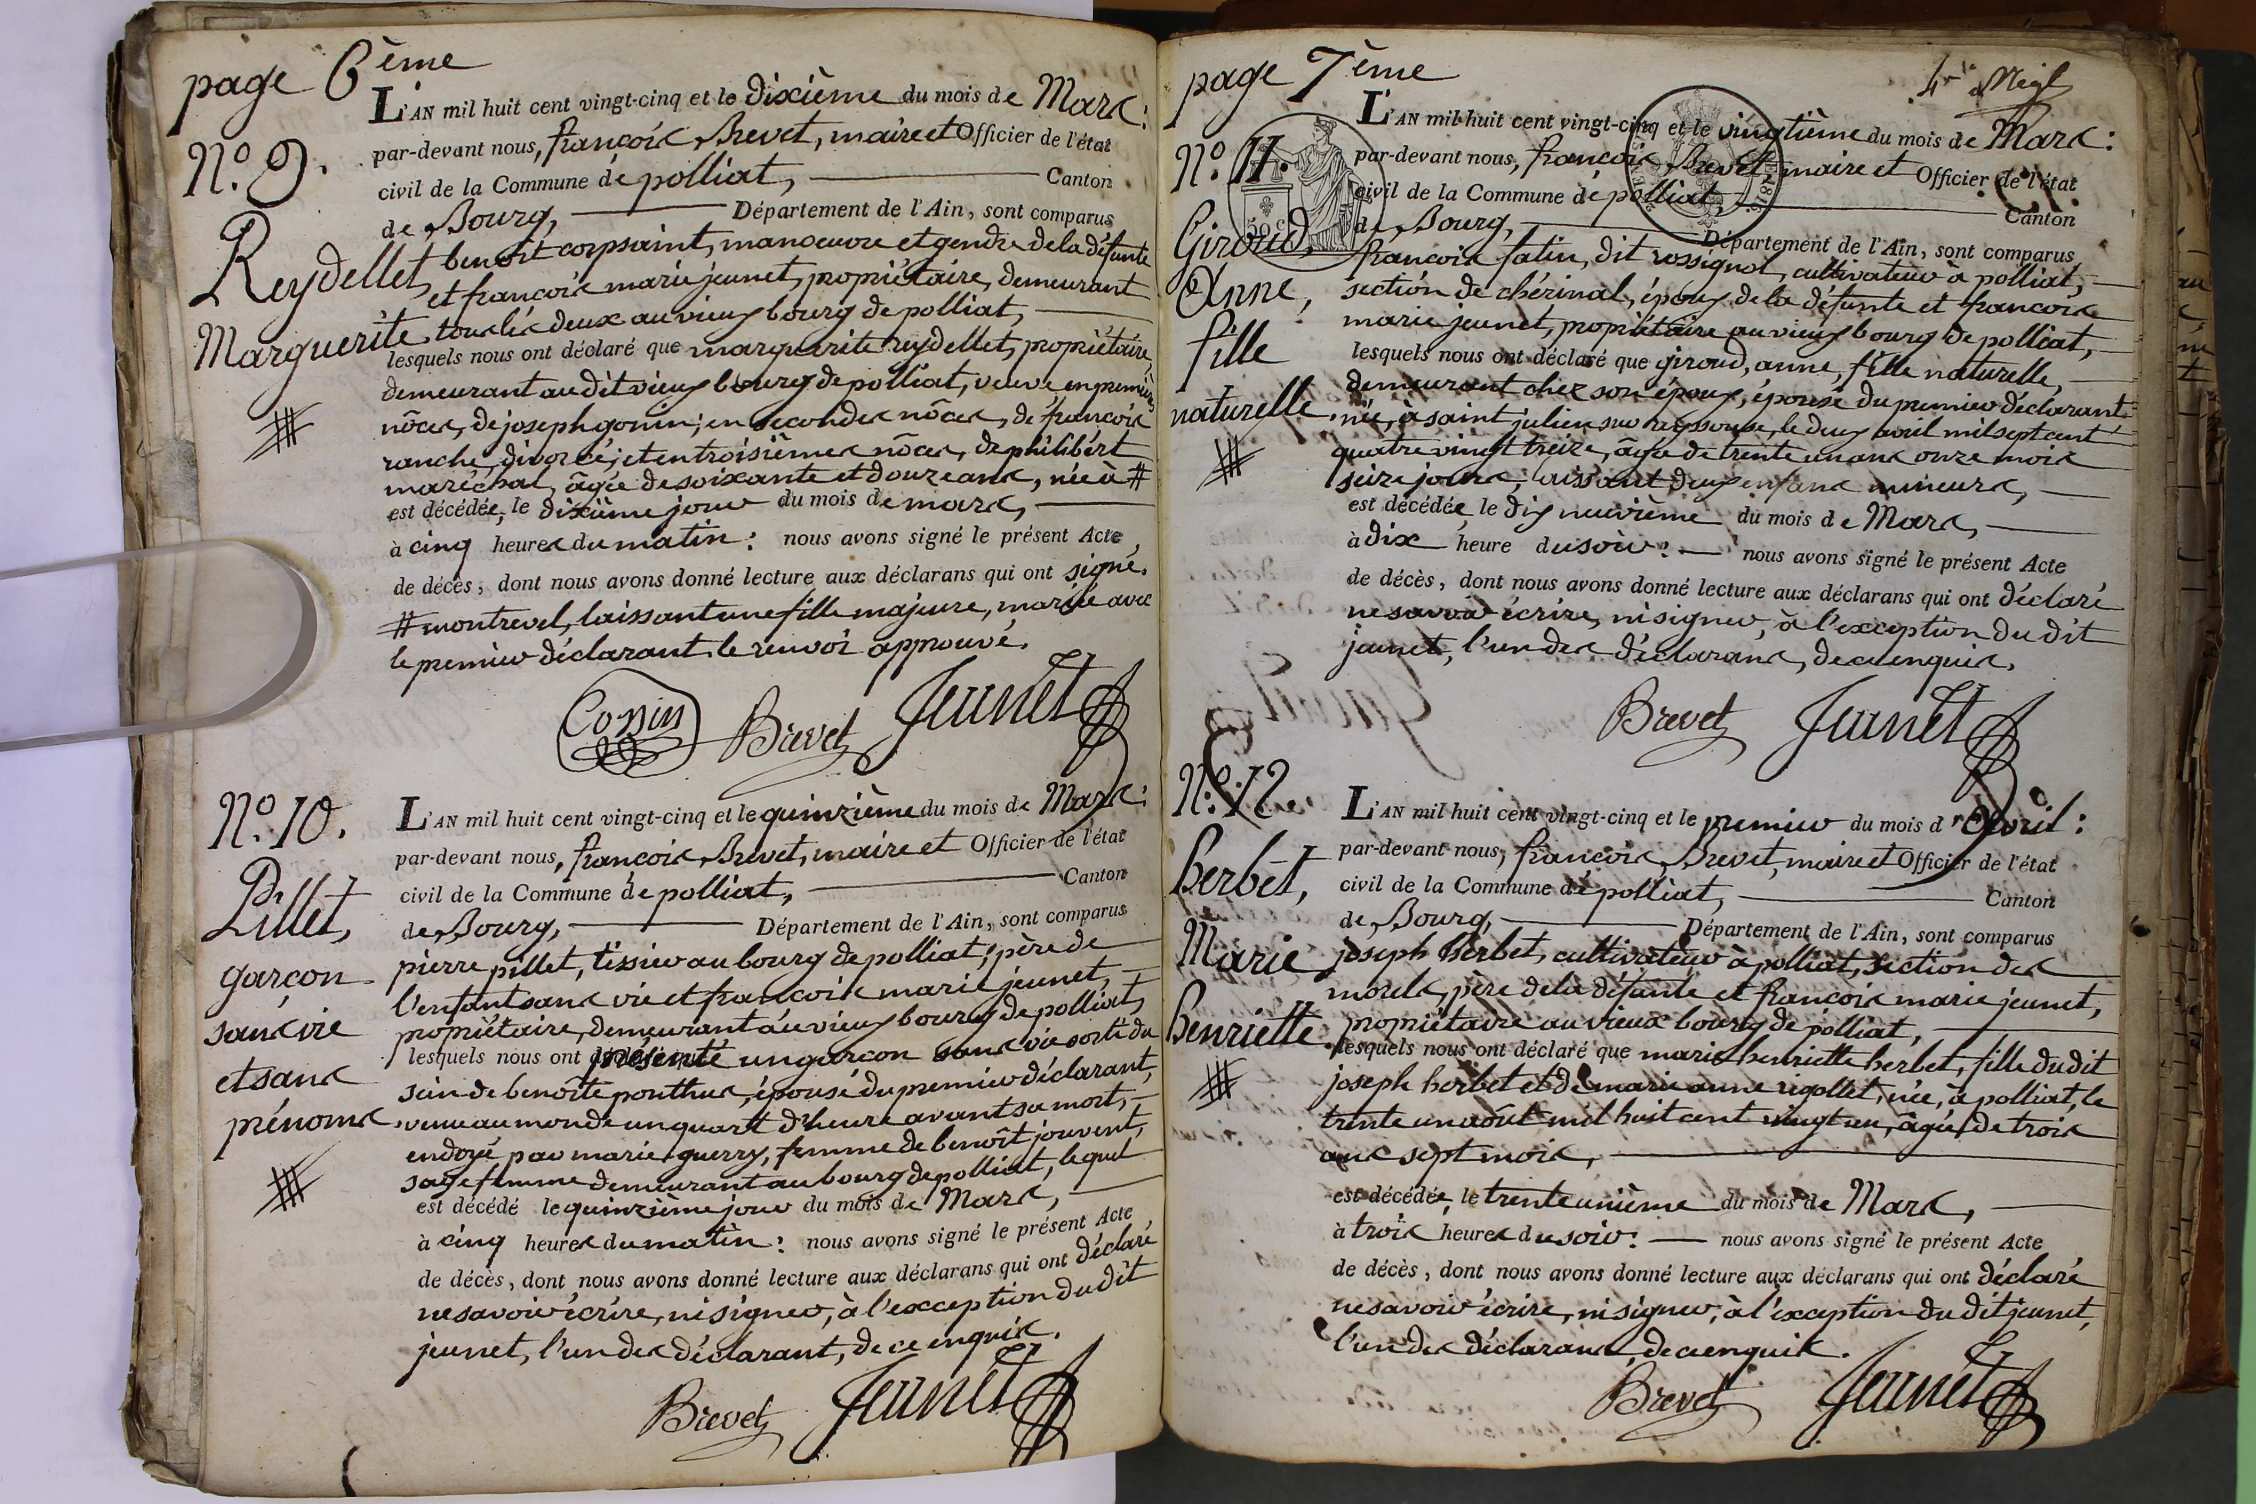 page 6ème
N.o 9.
Reydellet
Marguerite
L'AN mil huit cent vingt-cinq et le dixième du mois de Mars:
par-devant nous, françois Brevet, maire et Officier de l'état
civil de la Commune de polliat, Canton
de Bourg, Département de l'Ain, sont comparus
benoît corpsaint, manoeuvre et gendre de la défunte
et françois marie jeunet, propriétaire, demeurant
tous les deux au vieux bourg de polliat,
lesquels nous ont déclaré que marguerite reydellet, propriétaire,
demeurant au dit vieux bourg de polliat, veuve en premières
nôces, de joseph gonin; en secondes nôces, de françois
ranche, divorcé; et en troisièmes nôces, de philibért
maréchal, âgée de soixante et douze ans, née à #
est décédée, le dixième jour du mois de mars,
à cinq heures du matin: nous avons signé le présent Acte
de décès, dont nous avons donné lecture aux déclarans qui ont signé.
# montrevel, laissant une fille majeure, mariée avec
le premier déclarant. le renvoi approuvé.
Brevet Jeunet
N.o 10.
Pillet,
garçon
sans vie
et sans
prénoms.
L'AN mil huit cent vingt-cinq et le quinzième du mois de Mars:
par-devant nous, françois Brevet, maire et Officier de l'état
civil de la Commune de polliat, Canton
de Bourg, Département de l'Ain, sont comparus
pierre pillet, tissier au bourg de polliat, père de
l'enfant sans vie et françois marie jeunet,
propriétaire, demeurant au vieux bourg de polliat,
lesquels nous ont présenté un garçon sans vie sorti du
sein de benoîte ponthus, épouse du premier déclarant,
venu au monde un quart d'heure avant sa mort,
endoyé par marie guerry, femme de benoît jouvent,
sage femme demeurant au bourg de polliat, lequel
est décédé le quinzième jour du mois de Mars,
à cinq heures du matin: nous avons signé le présent Acte
de décès, dont nous avons donné lecture aux déclarans qui ont déclaré
ne savoir écrire, ni signer, à l'exception du dit
jeunet, l'un des déclarant, de ce enquis.
Brevet Jeunet
page 7ème
N.o 11.
50 c.
Giroud,
Anne,
fille
naturelle.
L'AN mil huit cent vingt-cinq et le vingtième du mois de Mars:
par-devant nous, françois Brevet, maire et Officier de l'état
civil de la Commune de polliat, Canton
de Bourg, Département de l'Ain, sont comparus
francois fatin, dit rossignol, cultivateur à polliat,
section de chérinal, époux de la défunte et françois
marie jeunet, propriétaire au vieux bourg de polliat,
lesquels nous ont déclaré que giroud, anne, fille naturelle,
demeurant chez son époux, épouse du premier déclarant
née, à saint julien sur reyssouse, le deux avril mil sept cent
quatre vingt treize, âgée de trente un ans onze mois
seize jours; laissant deux enfans mineurs,
est décédée, le dix neuvième du mois de Mars,
à dix heure du soir: nous avons signé le présent Acte
de décès, dont nous avons donné lecture aux déclarans qui ont déclaré
ne savoir écrire, ni signer, à l'exception du dit
jeunet, l'un des déclarans, de ce enquis.
Brevet Jeunet
N.o 12.
herbet,
Marie
henriette.
L'AN mil huit cent vingt-cinq et le premier du mois d'avril:
par-devant nous, françois Brevet, maire et Officier de l'état
civil de la Commune de polliat, Canton
de Bourg, Département de l'Ain, sont comparus
joseph herbet, cultivateur à polliat, section des
morels, père de la défunte et françois marie jeunet,
propriétaire au vieux bourg de polliat,
lesquels nous ont déclaré que marie henriette herbet, fille du dit
joseph herbet et de marie anne rigollet, née, à polliat, le
trente un août mil huit cent vingt un, âgée de trois
ans sept mois,
est décédée, le trente unième du mois de Mars,
à trois heures du soir: nous avons signé le présent Acte
de décès, dont nous avons donné lecture aux déclarans qui ont déclaré
ne savoir écrire, ni signer, à l'exception du dit jeunet,
l'un des déclarans, de ce enquis.
Brevet Jeunet